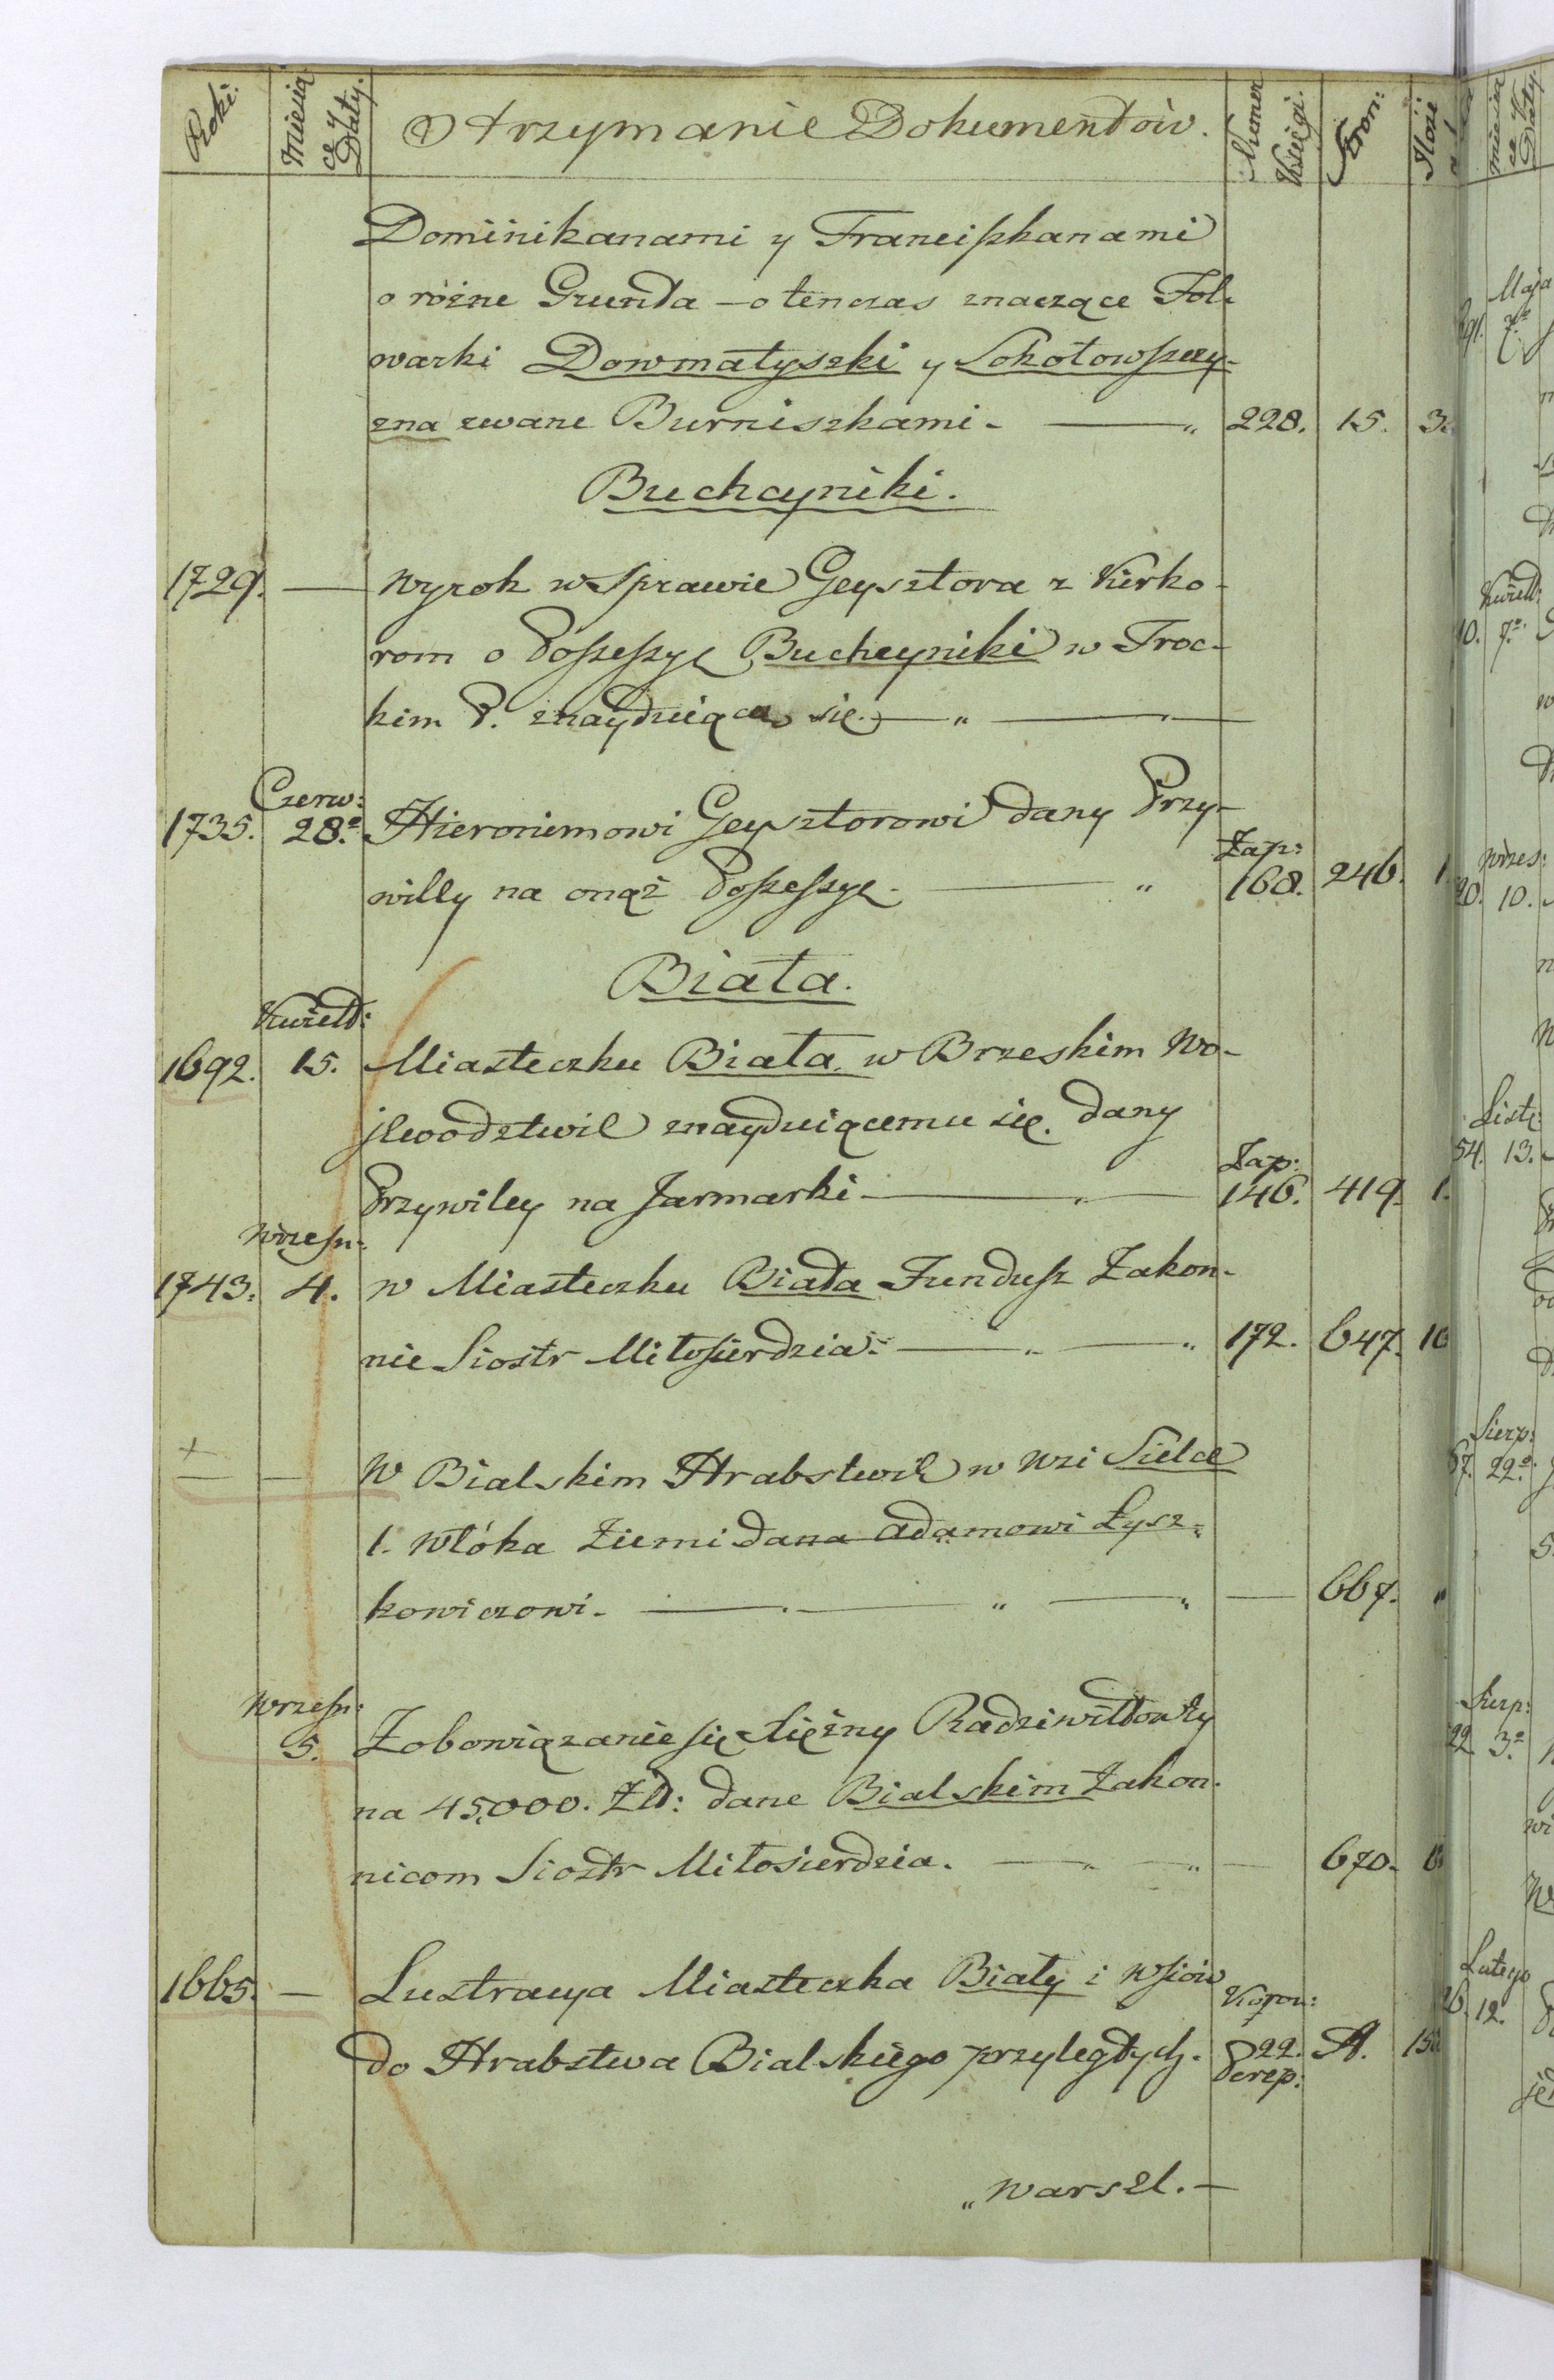 Roki. Miesiące y Daty. Otrzymanie Dokumentów. Numer Księgi. Stron: Ilość
Dominikanami y Franciszkanami
o różne Grunta — o tenczas znaczące Fol-
warki Dowmatyszki y Sokołowszczy-
zna zwane Burniszkami. — 228. 15. 3.
Buchcyniki.
1729. — Wyrok w Sprawie Geysztora z Kirko-
rom o Possessyę Buchcyniki w Troc-
kim P. znayduiąca się. —
Czerw:
1735. 28.° Hieronimowi Geysztorowi dany Przy-
willy na onąż Possessyę. — Zap: 168. 246. 1.
Biała.
Kwiet:
1692. 15. Miasteczku Biała w Brzeskim Wo-
jewodztwie znayduiącemu się. dany
Przywiley na Jarmarki — Zap: 146. 419. 1.
Wrzesn:
1743. 4. w Miasteczku Biała Fundusz Zakon-
nie Siostr Miłosierdzia. — 172. 647. 10
+
— — W Bialskim Hrabstwie w wsi Sielce
1. Włóka Ziemi dana Adamowi Łysz-
kowiczowi. — 667. "
Wrzesn:
5. Zobowiązanie się Xiężny Radziwiłłowły
na 45,000. Zł: dane Bialskim Zakon-
nicom Siostr Miłosierdzia. — 670.
1665. — Lustracya Miasteczka Biały i Wsiów
do Hrabstwa Bialskiego przyległych. Koron: 22. Perep: A. 15
" Warszl. —